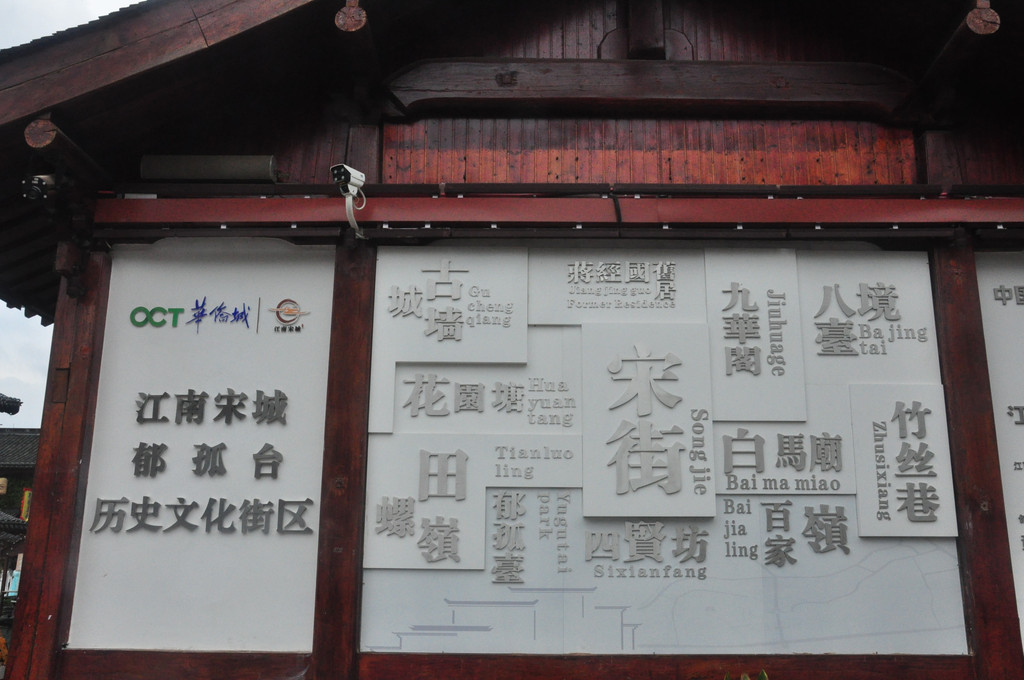 OCT 華僑城
江南宋城
郁孤台
历史文化街区
古城墙
Gu
cheng
qiang
蔣經國舊居
Jiang jing guo
Former Residence
九華閣
Jiuhuage
八境臺
Ba jing
tai
花園塘
Hua
yuan
tang
宋街
Song jie
竹丝巷
Zhusixiang
田螺嶺
Tianluo
ling
白馬廟
Bai ma miao
郁孤臺
Yugutai
Park
四賢坊
Sixianfang
百家嶺
Bai
jia
ling
中国